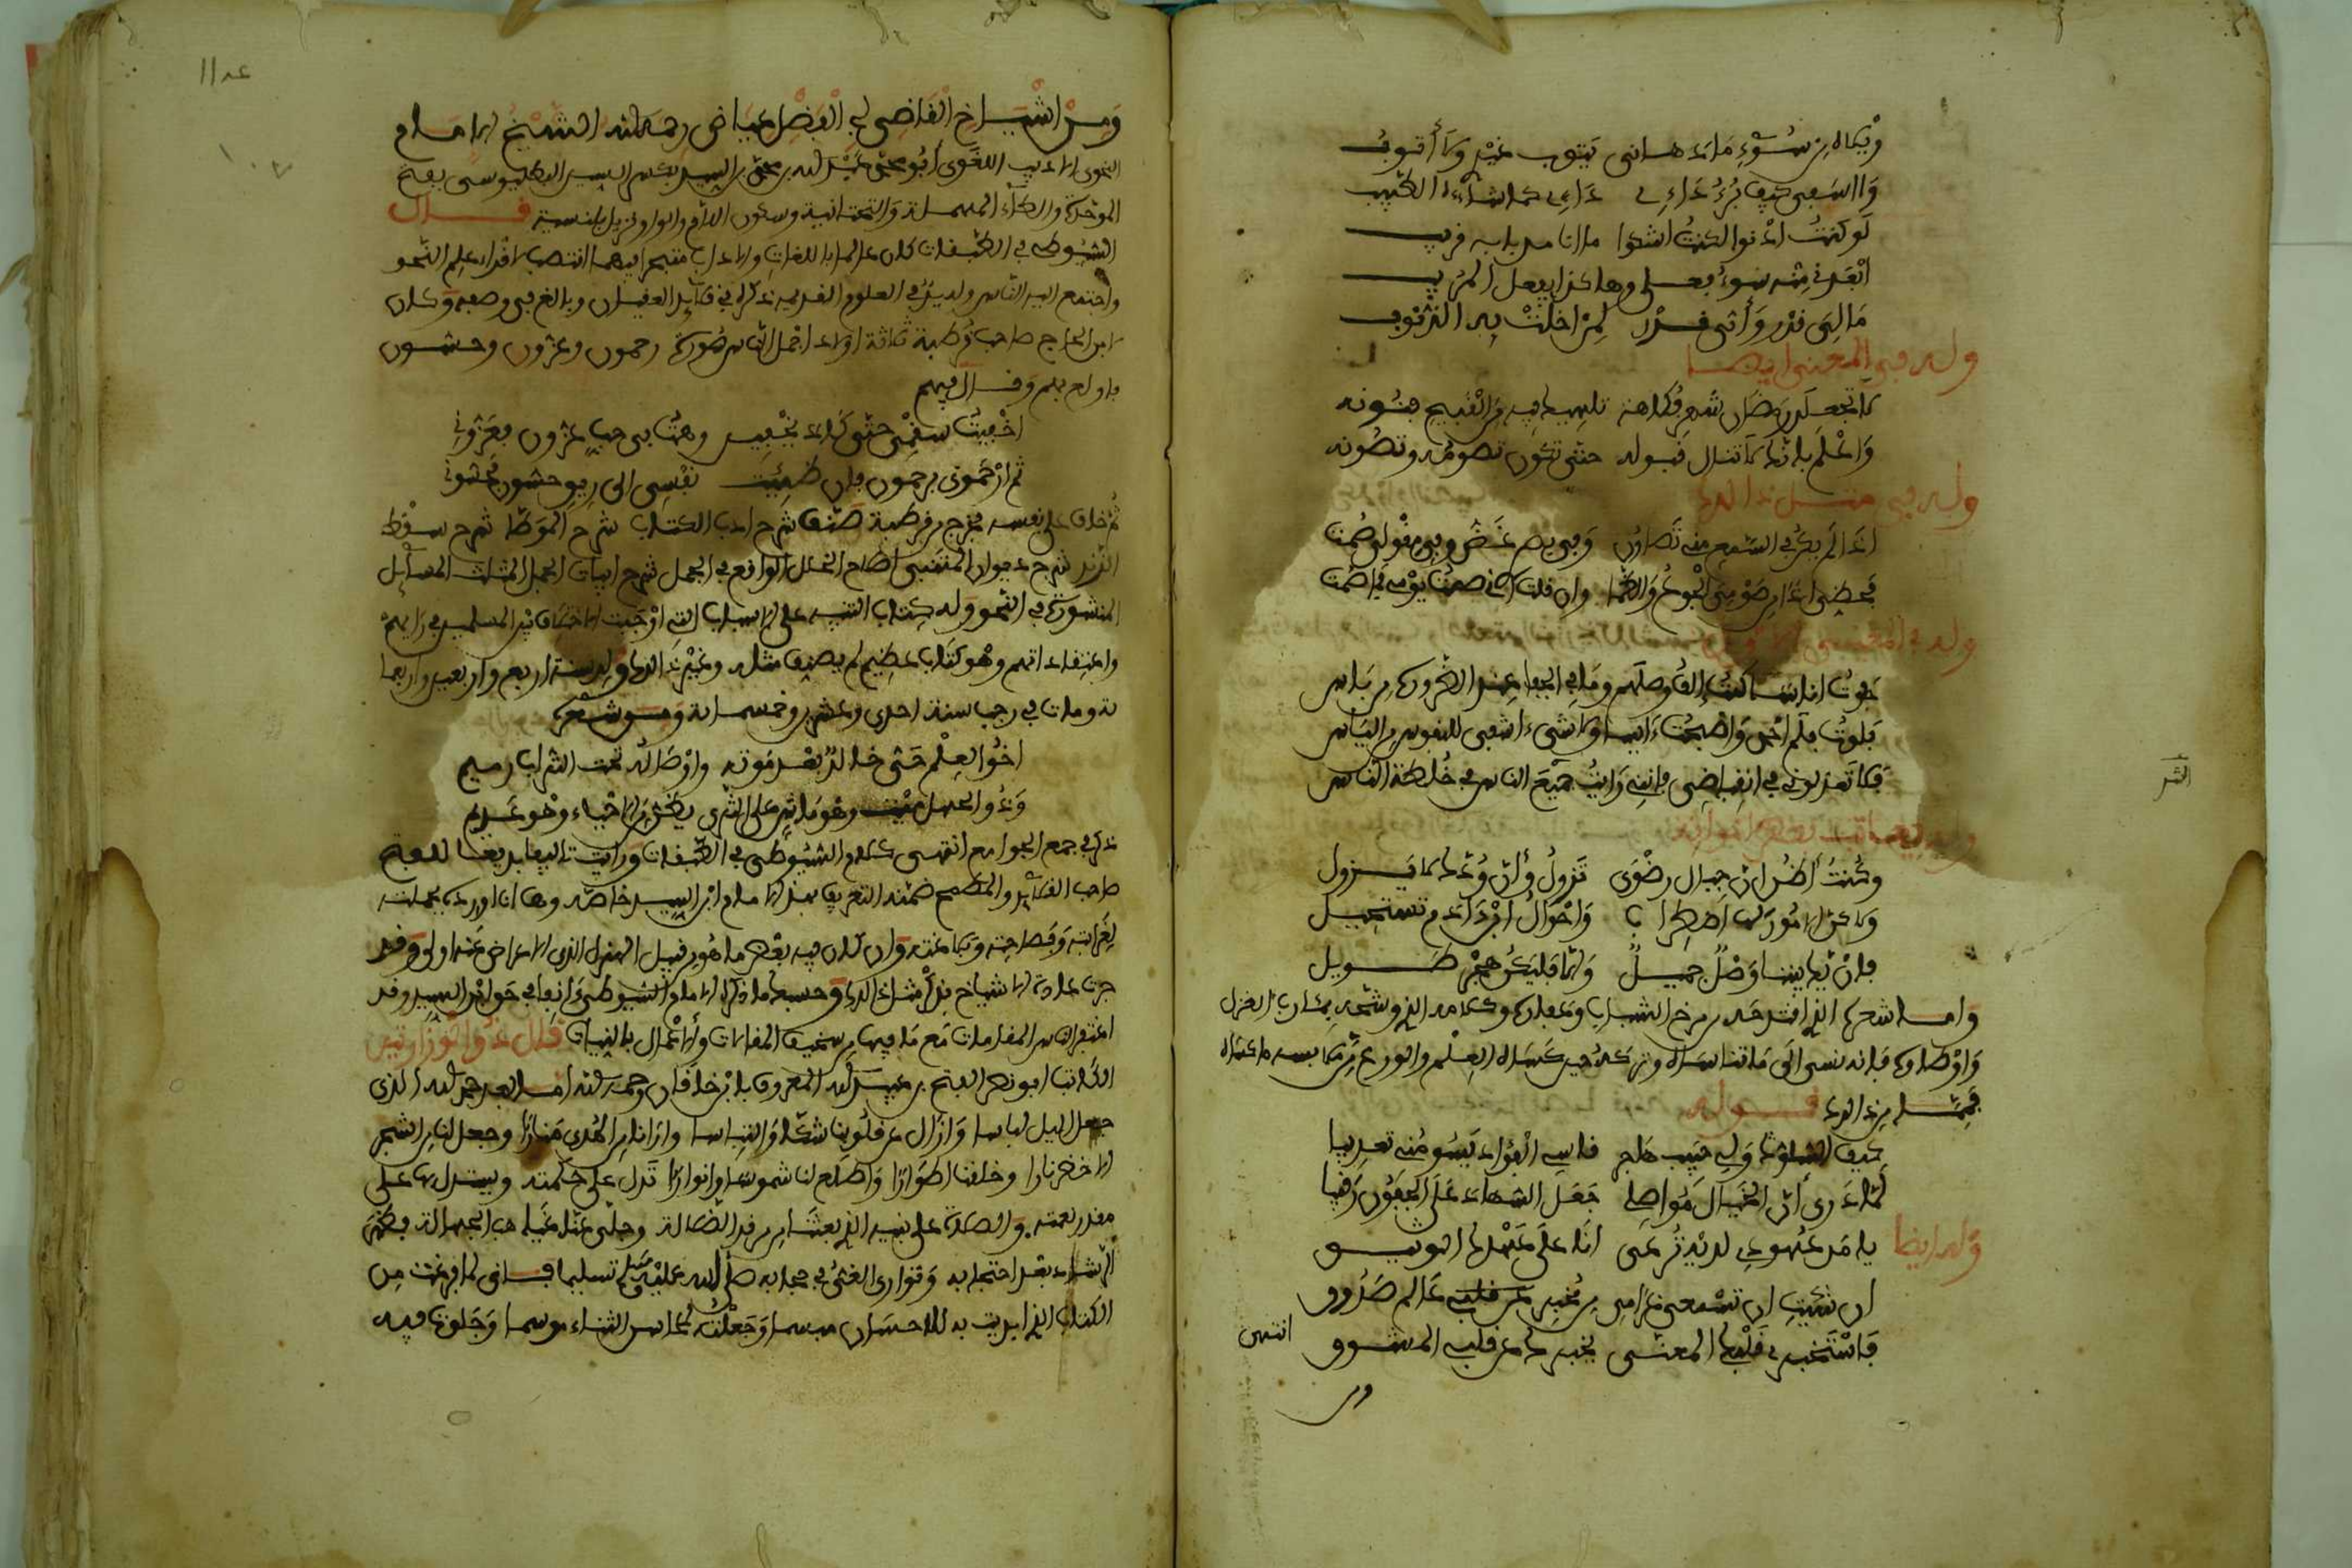 ويلاه من سوء ما دهاني يتوب غيري ولا أتوب
وا اسفي كيف برء دائي دائي كما شاءه الطبيب
لو كنت ادنو لكنت اشكوا ما انا من بابه قريب
ابعدني منه سوء فعلي وهاكذا يفعل المريب
ما لي قدر وأي قدر لمن اخلت به الذنوب
وله في المعنى ايضا
لا تجعلن رمضان شهر فكاهة تلهيك فيه من القبيح فنونه
واعلم بانك لا تنال قبوله حتى تكون تصومه وتصونه
وله في مثل ذالك
اذا لم يكن في السمع مني تصاون وفي بصري غض وفي مقولي صمت
فحظي اذا من صومي الجوع والظما وان قلت اني صمت يومي فما صمت
وله في المعنى
جفوت اناسا كنت الف وصلهم وما في الجفا عند الضرورة من باس
بلوت فلم احمد واصبحت ءايسا ولا شيء اشفى للنفوس من الياس
فلا تعذلوني في انقباضي فانني رايت جميع الناس في خلطة الناس
وله يعاتب بعض اخوانه
وكنت أظن ان جبال رضوى تزول وأن ودك لا يزول
ولاكن الامور لها اضطراب واحوال ابن ءادم تستحيل
فان يك بيننا وصل جميل والا فليكن هجر طويل
واما شعره الذي اقتدحه من مرخ الشباب وعفاره وكلامه الذي وشحه بمئارب الغزل
واوطاره فانه نسى الى ما تناساه وتركه حين كساه العلم والورع من ملابسه ما كساه
فمما من ذالك قوله
كيف السلو ولي حبيب هاجر قاسي الفؤاد يسومني تعذيبا
لما درى أن الخيال مواصلي جعل السهاد على الجفون رقيبا
وله ايضا
يا من عهودي لديك ترعى انا على عهدك الوثيق
ان شئت ان تسمعي غرامي من مخبر عالم صدوق
فاستخبري قلبك المعنى يخبرك عن قلبي المشوق
انتهى
ومن اشياخ القاضي ابي الفضل عياض رحمه الله الشيخ الامام
النحوي الاديب اللغوي أبو محمد عبد الله بن محمد بن السيد بكسر السين البطليوسي بفتح
الموحدة والطاء المهملة والتحتانية وسكون اللام والواو نزيل بلنسية قال
السيوطي في الطبقات كان عالما باللغات والاداب متبحرا فيهما انتصب لاقراء علم النحو
واجتمع اليه الناس وله يد في العلوم القديمة ذكره في قلائد العقيان وبالغ في وصفه وكان
لابن الحاج صاحب قرطبة ثلاثة اولاد اجمل الناس صورة رحمون وعزون وحسون
فاولع بهم وقال فيهم
اخفيت سقمي حتى كاد يخفيني وهمت في حب عزون فعزوني
ثم ارحموني برحمون فان ظمئت نفسي الى ريق حسون فحسوني
ثم خاف على نفسه فخرج من قرطبة صنف شرح ادب الكتاب شرح الموطا شرح سقط
الزند شرح ديوان المتنبي اصلاح الخلل الواقع في الجمل شرح ابيات الجمل المثلث المسائل
المنثورة في النحو وله كتاب التنبيه على الاسباب التي اوجبت الاختلاف بين المسلمين في رايهم
واعتقاداتهم وهو كتاب عظيم لم يصنف مثله وغير ذالك ولد سنة اربع واربعين واربعما
ئة ومات في رجب سنة احدى وعشرين وخمسمائة ومن شعره
اخو العلم حي خالد بعد موته واوصاله تحت التراب رميم
وذو الجهل ميت وهو ماش على الثرى يظن من الاحياء وهو عديم
ذكر في جمع الجوامع انتهى كلام السيوطي في الطبقات ورايت تاليفا بديعا للفتح
صاحب القلائد والمطمح ضمنه التعريف بهذا الامام ابن السيد خاصة وها انا اورده بجملته
لغرابته وفصاحته وبلاغته وان كان فيه بعض ما هو من قبيل الهزل الذي الاعراض عنه اولى وقد
جرت عادة الاشياخ بذكر مثل ذالك وحسبك ما ذكره الامام السيوطي ءانفا في حق ابن السيد وقد
اغتفر الناس المقامات مع ما فيها من سخيف المقالات والاعمال بالنيات قال ذو الوزارتين
الكاتب ابو نصر الفتح بن عبيد الله المعروف بابن خاقان رحمه الله اما بعد حمد الله الذي
جعل الليل لباسا وازال عن قلوبنا شكا والتباسا وارانا من الهدى منارا وجعل لنا من الشجر
الاخضر نارا وخلقنا اطوارا واطلع لنا شموسا وانوارا تدل على حكمته ويستدل بها على
مقدر نعمته والصلاة على نبيه الذي بعثنا من مرقد الضلالة وجلى عنا غياهب الجهالة فظهر
الرشد بعد احتجابه وتوارى الغي في حجابه صلى الله عليه وسلم تسليما فاني لما فرغت من
الكتاب الذي ابديت به للاحسان مبسما وجعلته لمحاسن الثناء موسما وجلوت فيه